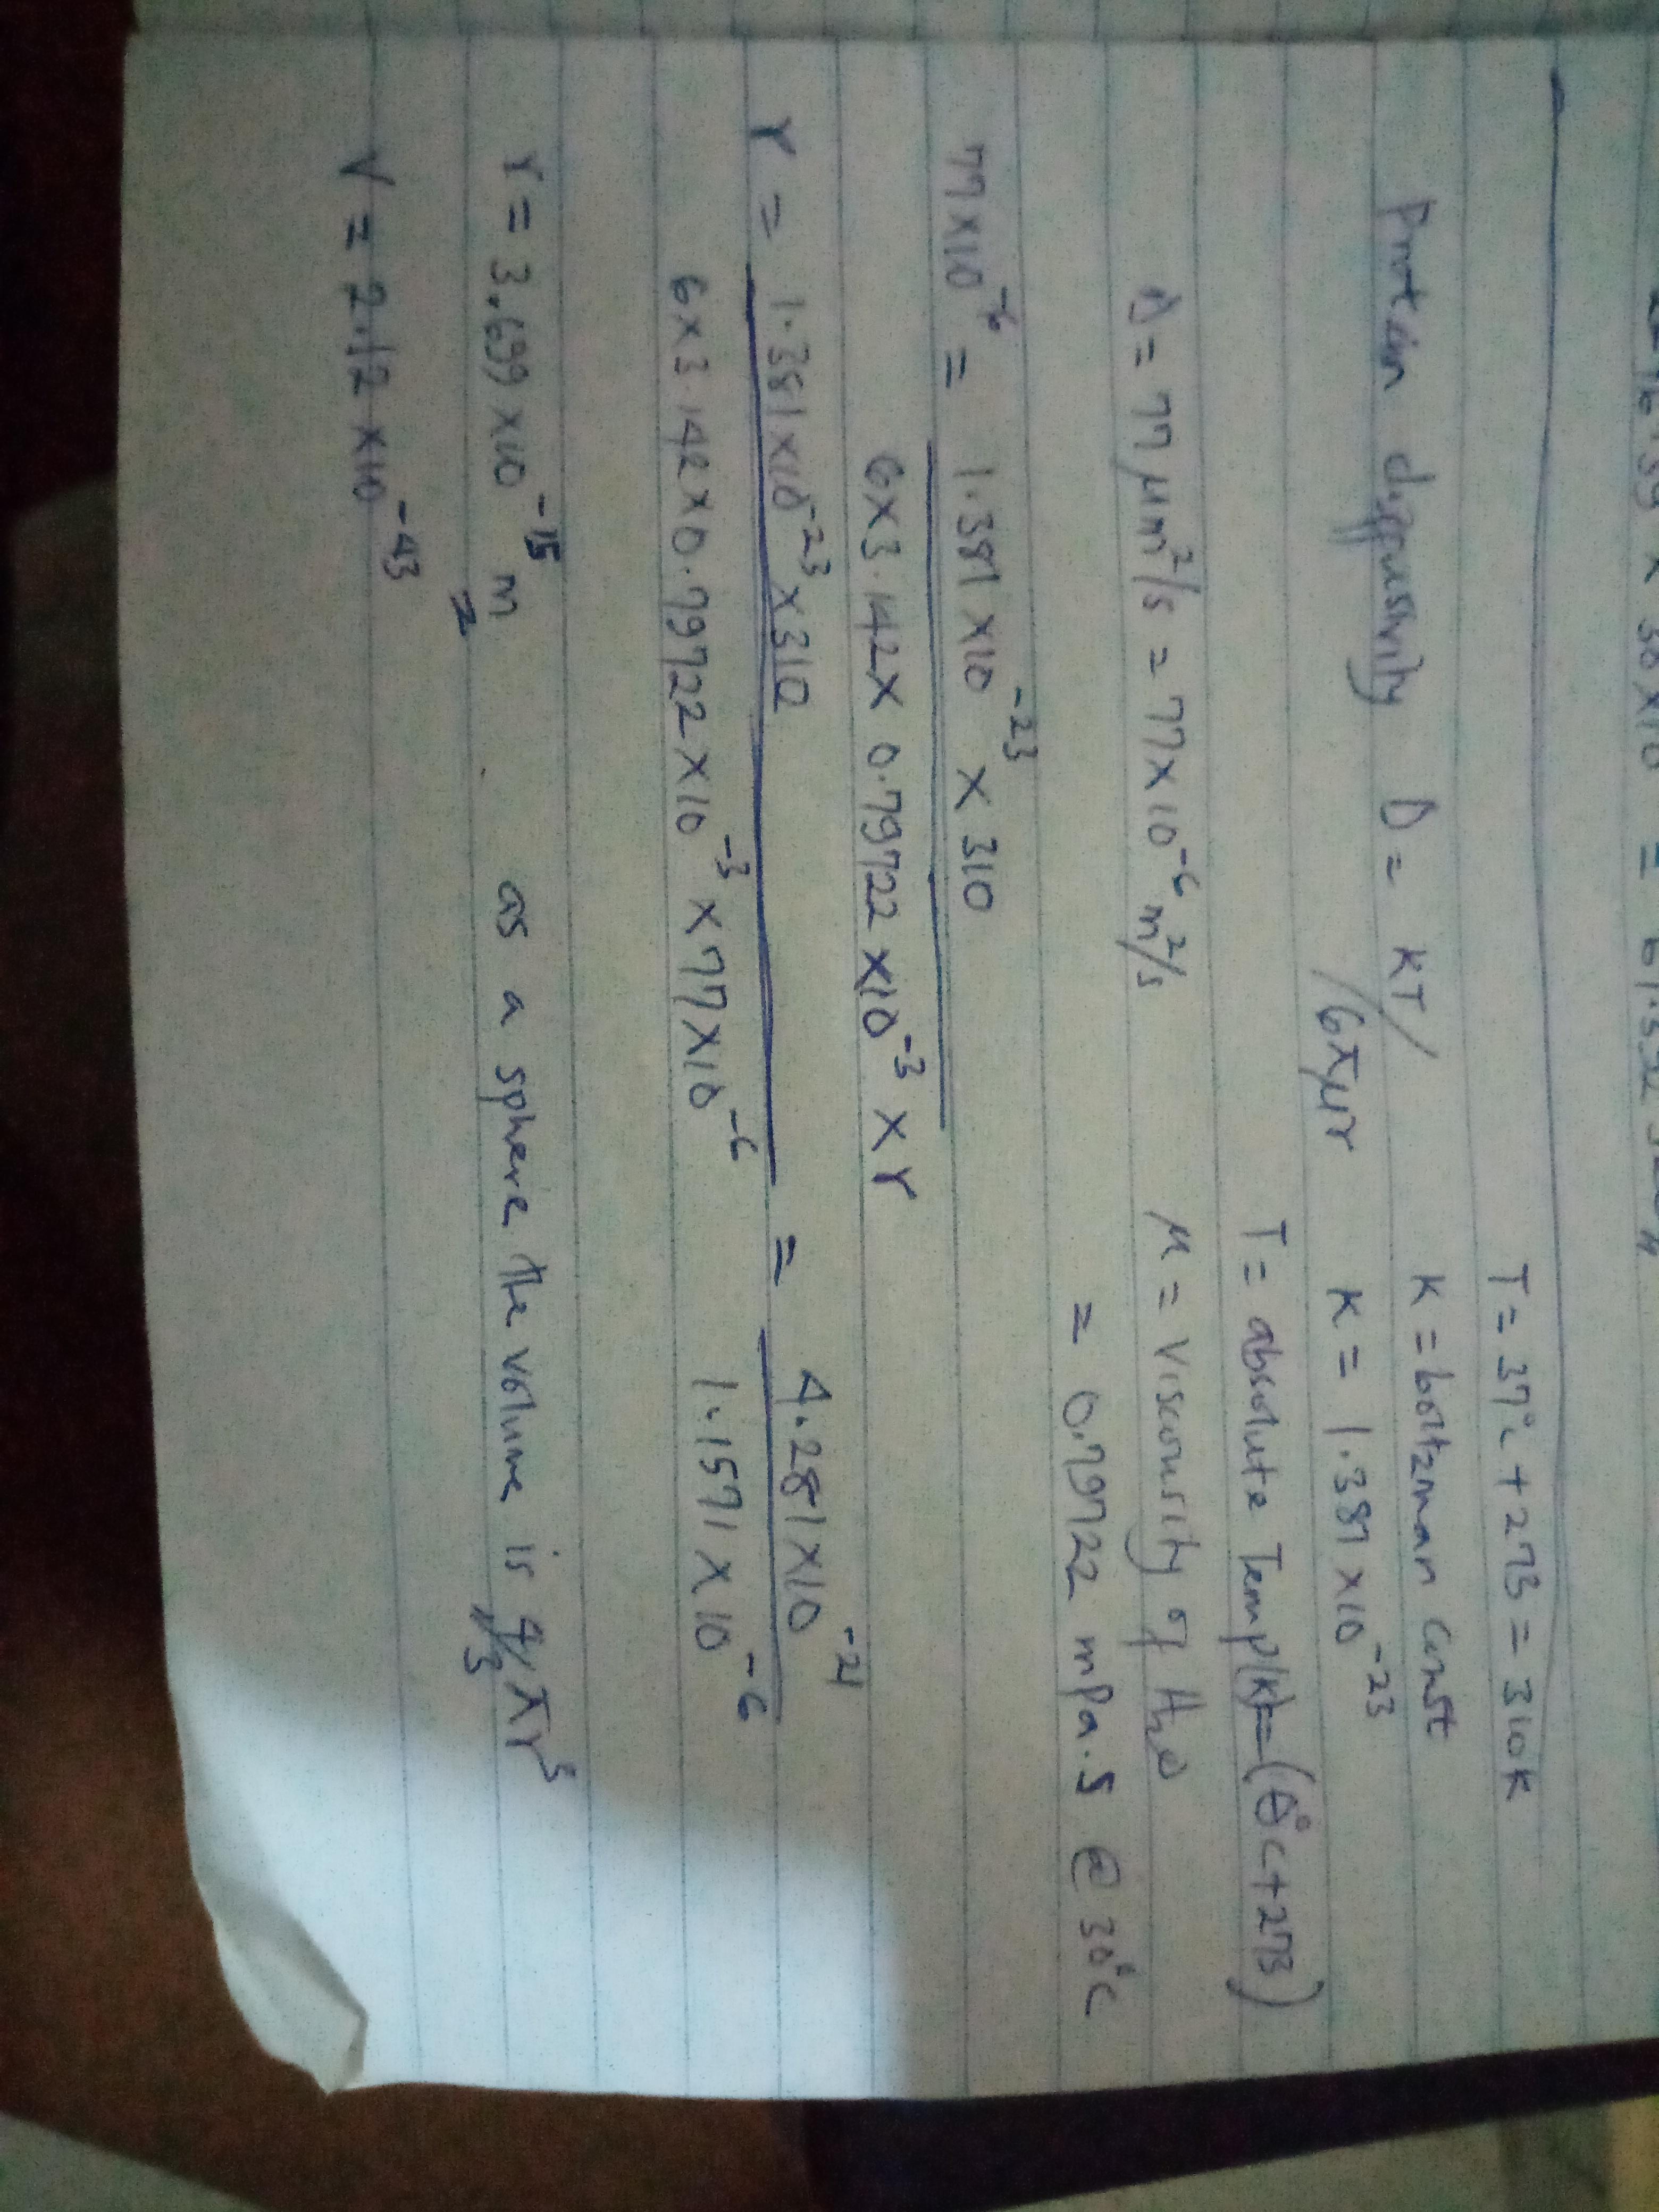 T = 37°C + 273 = 310K
Protein diffusivity D = KT/6πμr K = boltzman const
K = 1.381 × 10⁻²³
T = absolute Temp(K) = (θ°C + 273)
D = 77 μm²/s = 77×10⁻⁶ m²/s μ = Viscousity of H₂O
= 0.79722 mPa.s @ 30°C
77×10⁻⁶ = 1.381 ×10⁻²³ × 310
6×3.142× 0.79722 ×10⁻³ × r
r = 1.381×10⁻²³ × 310 = 4.281×10⁻²¹
6×3.142×0.79722×10⁻³ × 77×10⁻⁶ 1.1571 × 10⁻⁶
r = 3.699 ×10⁻¹⁵ m as a sphere the volume is 4/3 πr³
V = 2.12 ×10⁻⁴³